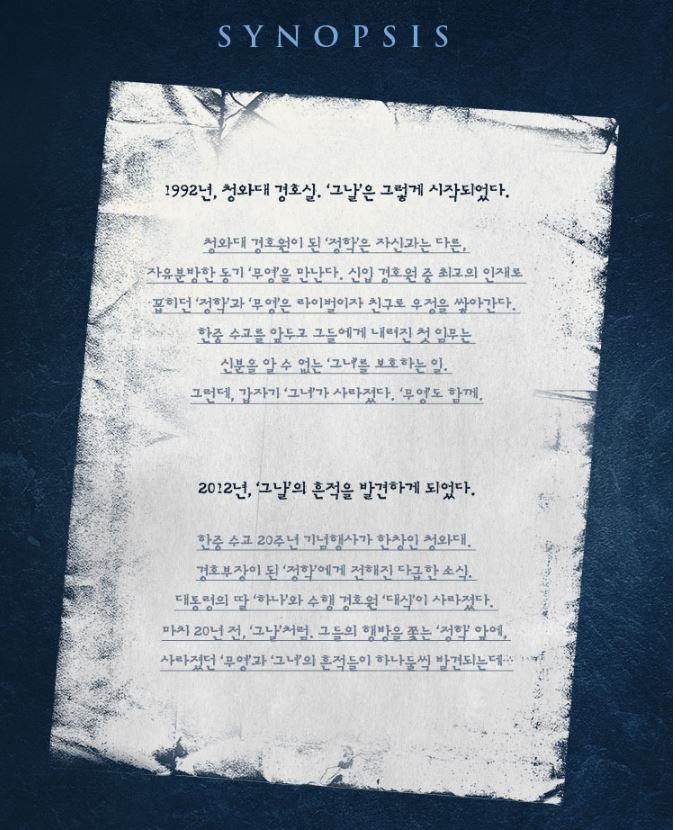 SYNOPSIS
1992년, 청와대 경호실. '그날'은 그렇게 시작되었다.
청와대 경호원이 된 '정학'은 자신과는 다른,
자유분방한 동기 '무영'을 만난다. 신입 경호원 중 최고의 인재로
꼽히던 '정학'과 '무영'은 라이벌이자 친구로 우정을 쌓아간다.
한중 수교를 앞두고 그들에게 내려진 첫 임무는
신분을 알 수 없는 '그녀'를 보호하는 일.
그런데, 갑자기 '그녀'가 사라졌다. '무영'도 함께.
2012년, '그날'의 흔적을 발견하게 되었다.
한중 수교 20주년 기념행사가 한창인 청와대.
경호부장이 된 '정학'에게 전해진 다급한 소식.
대통령의 딸 '하나'와 수행 경호원 '대식'이 사라졌다.
마치 20년 전, '그날'처럼. 그들의 행방을 쫓는 '정학' 앞에,
사라졌던 '무영'과 '그녀'의 흔적들이 하나둘씩 발견되는데…